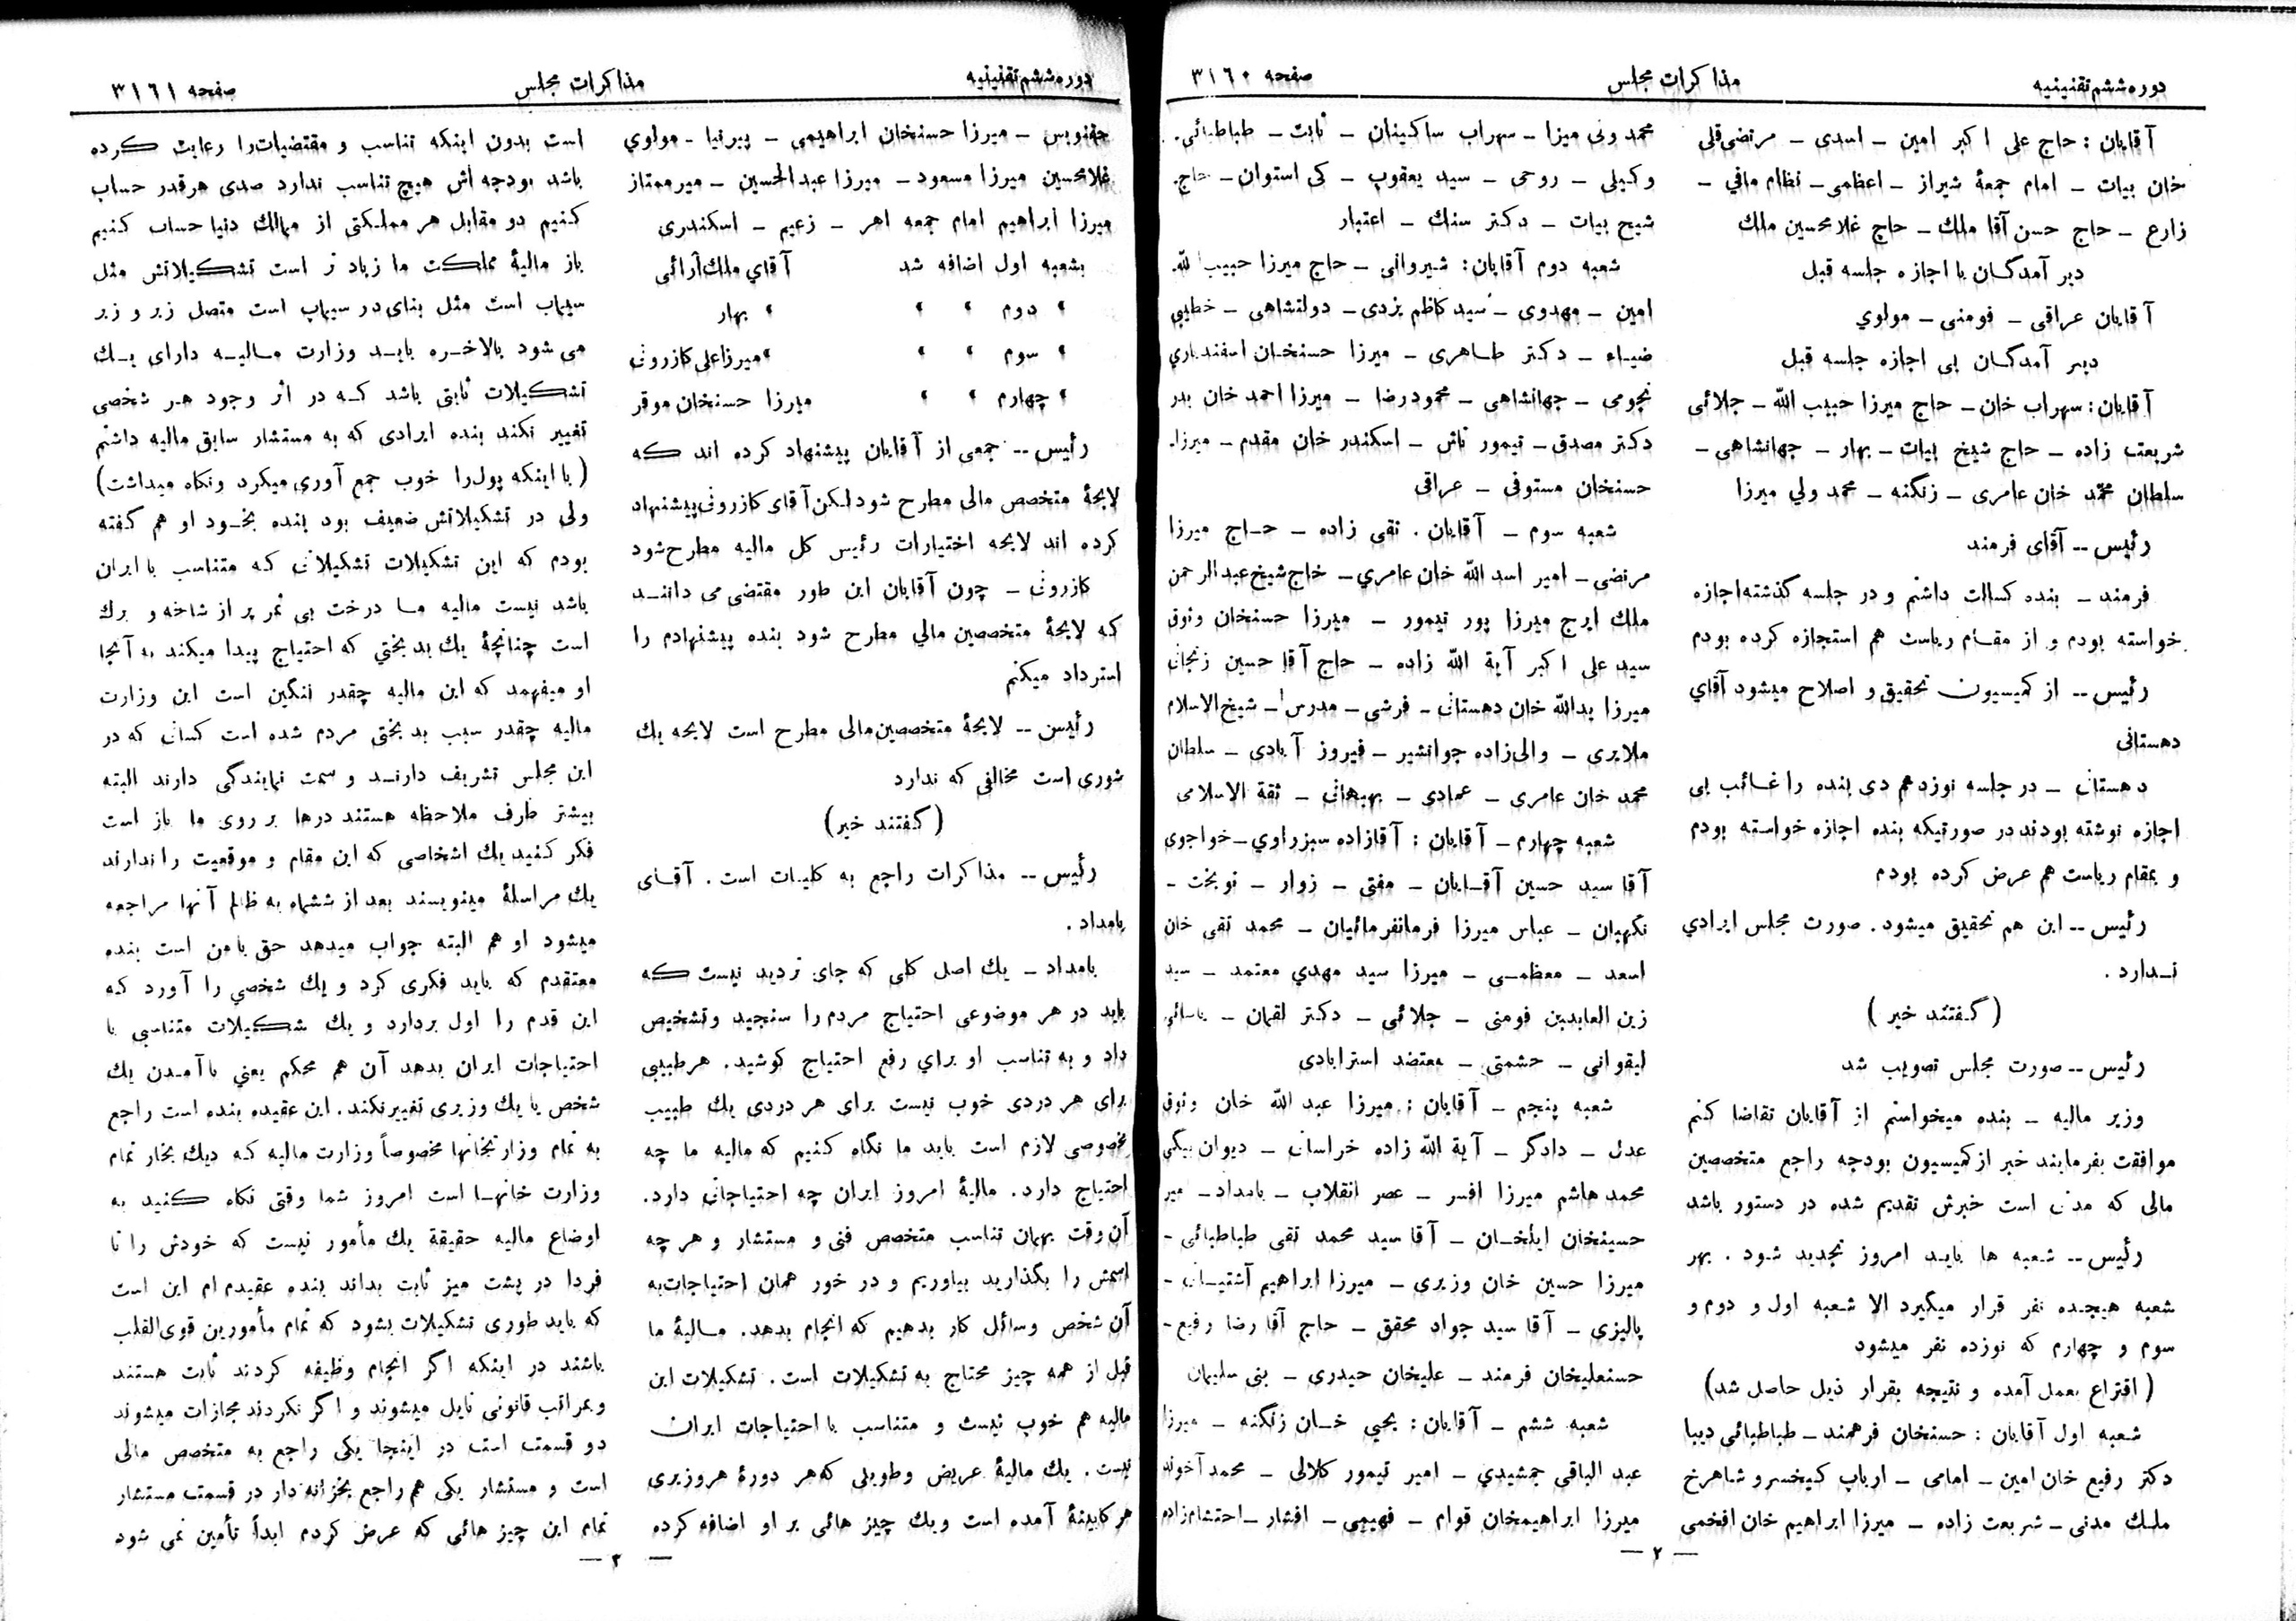 دوره ششم تقنینیه
مذاکرات مجلس
صفحه ۳۱۶۰
آقایان : حاج علی اکبر امین ـ اسدی ـ مرتضی قلی
خان بیات ـ امام جمعهٔ شیراز ـ اعظمی ـ نظام مافی ـ
زارع ـ حاج حسن آقا ملك ـ حاج غلامحسین ملك
دیر آمدگان با اجازه جلسه قبل
آقایان عراقی ـ فومنی ـ مولوي
دیر آمدگان بی اجازه جلسه قبل
آقایان : سهراب خان ـ حاج میرزا حبیب الله ـ جلائی
شریعت زاده ـ حاج شیخ بیات ـ بهار ـ جهانشاهی ـ
سلطان محمد خان عامری ـ زنگنه ـ محمد ولي میرزا
رئیس -- آقای فرمند
فرمند ـ بنده کسالت داشتم و در جلسه گذشته اجازه
خواسته بودم و از مقام ریاست هم استجازه کرده بودم
رئیس -- از کمیسیون تحقیق و اصلاح میشود آقاي
دهستانی
دهستانی ـ در جلسه نوزدهم دی بنده را غائب بی
اجازه نوشته بودند در صورتیکه بنده اجازه خواسته بودم
و بمقام ریاست هم عرض کرده بودم
رئیس -- این هم تحقیق میشود . صورت مجلس ایرادي
ندارد .
( گفتند خیر )
رئیس -- صورت مجلس تصویب شد
وزیر مالیه ـ بنده میخواستم از آقایان تقاضا کنم
موافقت بفرمایند خبر از کمیسیون بودجه راجع متخصصین
مالی که مدتی است خبرش تقدیم شده در دستور باشد
رئیس -- شعبه ها باید امروز تجدید شود . بهر
شعبه هیجده نفر قرار میگیرد الا شعبه اول و دوم و
سوم و چهارم که نوزده نفر میشود
( اقتراع بعمل آمده و نتیجه بقرار ذیل حاصل شد )
شعبه اول آقایان : حسنخان فرهمند ـ طباطبائی دیبا
دکتر رفیع خان امین ـ امامی ـ ارباب کیخسرو شاهرخ
ملك مدنی ـ شریعت زاده ـ میرزا ابراهیم خان افخمی
محمد ولی میزا ـ سهراب ساکینان ـ ثابت ـ طباطبائی
وکیلی ـ روحی ـ سید یعقوب ـ کی استوان ـ حاج
شیخ بیات ـ دکتر سنك ـ اعتبار
شعبه دوم آقایان : شیروانی ـ حاج میرزا حبیب الله
امین ـ مهدوی ـ سید کاظم یزدی ـ دولتشاهی ـ خطیبی
ضیاء ـ دکتر طاهری ـ میرزا حسنخان اسفندیاري
نجومی ـ جهانشاهی ـ محمود رضا ـ میرزا احمد خان بدر
دکتر مصدق ـ تیمور تاش ـ اسکندر خان مقدم ـ میرزا
حسنخان مستوفی ـ عراقی
شعبه سوم ـ آقایان . تقی زاده ـ حاج میرزا
مرتضی ـ امیر اسد الله خان عامري ـ حاج شیخ عبد الرحمن
ملك ایرج میرزا پور تیمور ـ میرزا حسنخان وثوق
سید علی اکبر آیة الله زاده ـ حاج آقا حسین زنجانی
میرزا یدالله خان دهستانی ـ فرشی ـ مدرس ـ شیخ الاسلام
ملایری ـ والی زاده جوانشیر ـ فیروز آبادی ـ سلطان
محمد خان عامری ـ عمادی ـ بهبهانی ـ ثقة الاسلامی
شعبه چهارم ـ آقایان : آقازاده سبزواري ـ خواجوی
آقا سید حسین آقایان ـ مفتی ـ زوار ـ نوبخت ـ
نگهبان ـ عباس میرزا فرمانفرمائیان ـ محمد تقی خان
اسعد ـ معظمی ـ میرزا سید مهدي معتمد ـ سید
زین العابدین فومنی ـ جلائی ـ دکتر لقمان ـ یاسائی
لیقوانی ـ حشمتی ـ معتضد استرابادی
شعبه پنجم ـ آقایان : میرزا عبد الله خان وثوق
عدل ـ دادگر ـ آیة الله زاده خراسانی ـ دیوان بیگی
محمد هاشم میرزا افسر ـ عصر انقلاب ـ بامداد ـ میر
حسینخان ایلخان ـ آقا سید محمد تقی طباطبائی ـ
میرزا حسین خان وزیری ـ میرزا ابراهیم آشتیانی ـ
پالیزی ـ آقا سید جواد محقق ـ حاج آقا رضا رفیع ـ
حسنعلیخان فرمند ـ علیخان حیدری ـ بنی سلیمان
شعبه ششم ـ آقایان : یحیي خان زنگنه ـ میرزا
عبد الباقی جمشیدي ـ امیر تیمور کلالی ـ محمد آخوند
میرزا ابراهیمخان قوام ـ فهیمی ـ افشار ـ احتشام زاده
— ۲ —
دوره ششم تقنینیه
مذاکرات مجلس
صفحه ۳۱۶۱
جفنویس ـ میرزا حسنخان ابراهیمی ـ پیرنیا ـ مولوي
غلامحسین میرزا مسعود ـ میرزا عبدالحسین ـ میر ممتاز
میرزا ابراهیم امام جمعه اهر ـ زعیم ـ اسکندری
بشعبه اول اضافه شد آقاي ملك آرائی
« دوم « « « بهار
« سوم « « « میرزا علی کازرونی
« چهارم « « میرزا حسنخان موقر
رئیس -- جمعی از آقایان پیشنهاد کرده اند که
لایحهٔ متخصص مالی مطرح شود لکن آقای کازرونی پیشنهاد
کرده اند لایحه اختیارات رئیس کل مالیه مطرح شود
کازرونی ـ چون آقایان این طور مقتضی می دانند
که لایحهٔ متخصصین مالي مطرح شود بنده پیشنهادم را
استرداد میکنم
رئیس -- لایحهٔ متخصصین مالی مطرح است لایحه یك
شوری است مخالفی که ندارد
( گفتند خیر )
رئیس -- مذاکرات راجع به کلیات است . آقای
بامداد .
بامداد ـ یك اصل کلی که جای تردید نیست که
باید در هر موضوعی احتیاج مردم را سنجید وتشخیص
داد و به تناسب او براي رفع احتیاج کوشید . هر طبیبی
برای هر دردی خوب نیست برای هر دردی یك طبیب
مخصوصی لازم است باید ما نگاه کنیم که مالیه ما چه
احتیاج دارد . مالیهٔ امروز ایران چه احتیاجاتی دارد .
آن وقت بهمان تناسب متخصص فنی و مستشار و هر چه
اسمش را بگذارید بیاوریم و در خور همان احتیاجات به
آن شخص وسائل کار بدهیم که انجام بدهد . مالیهٔ ما
قبل از همه چیز محتاج به تشکیلات است . تشکیلات این
مالیه هم خوب نیست و متناسب با احتیاجات ایران
نیست . یك مالیهٔ عریض وطویلی که هر دورهٔ هر وزیری
هر کابینهٔ آمده است ویك چیز هائی بر او اضافه کرده
است بدون اینکه تناسب و مقتضیات را رعایت کرده
باشد بودجه اش هیچ تناسب ندارد صدی هر قدر حساب
کنیم دو مقابل هر مملکتی از ممالك دنیا حساب کنیم
باز مالیهٔ مملکت ما زیاد تر است تشکیلاتش مثل
سیماب است مثل بنای در سیماب است متصل زیر و زبر
می شود بالاخره باید وزارت مالیه دارای یك
تشکیلات ثابتی باشد که در اثر وجود هر شخصی
تغییر نکند بنده ایرادی که به مستشار سابق مالیه داشتم
( با اینکه پول را خوب جمع آوری میکرد ونگاه میداشت )
ولی در تشکیلاتش ضعیف بود بنده بخود او هم گفته
بودم که این تشکیلات تشکیلاتی که متناسب با ایران
باشد نیست مالیه ما درخت بی ثمر پر از شاخه و برك
است چنانچهٔ یك بد بختي که احتیاج پیدا میکند به آنجا
او میفهمد که این مالیه چقدر ننگین است این وزارت
مالیه چقدر سبب بد بختی مردم شده است کسانی که در
این مجلس تشریف دارند و سمت نمایندگی دارند البته
بیشتر طرف ملاحظه هستند درها بر روی ما باز است
فکر کنید یك اشخاصی که این مقام و موقعیت را ندارند
یك مراسلهٔ مینویسند بعد از ششماه به ظالم آنها مراجعه
میشود او هم البته جواب میدهد حق با من است بنده
معتقدم که باید فکری کرد و یك شخصي را آورد که
این قدم را اول بردارد و یك تشکیلات متناسبی با
احتیاجات ایران بدهد آن هم محکم یعني با آمدن یك
شخص یا یك وزیری تغییر نکند . این عقیده بنده است راجع
به تمام وزارتخانها مخصوصاً وزارت مالیه که دیك بخار تمام
وزارت خانها است امروز شما وقتی نگاه کنید به
اوضاع مالیه حقیقة یك مأمور نیست که خودش را تا
فردا در پشت میز ثابت بداند بنده عقیدم ام این است
که باید طوری تشکیلات بشود که تمام مأمورین قوی القلب
باشند در اینکه اگر انجام وظیفه کردند ثابت هستند
وبمراتب قانونی نایل میشوند و اگر نکردند مجازات میشوند
دو قسمت است در اینجا یکی راجع به متخصص مالی
است و مستشار یکی هم راجع بخزانه دار در قسمت مستشار
تمام این چیز هائی که عرض کردم ابداً تأمین نمی شود
— ۳ —